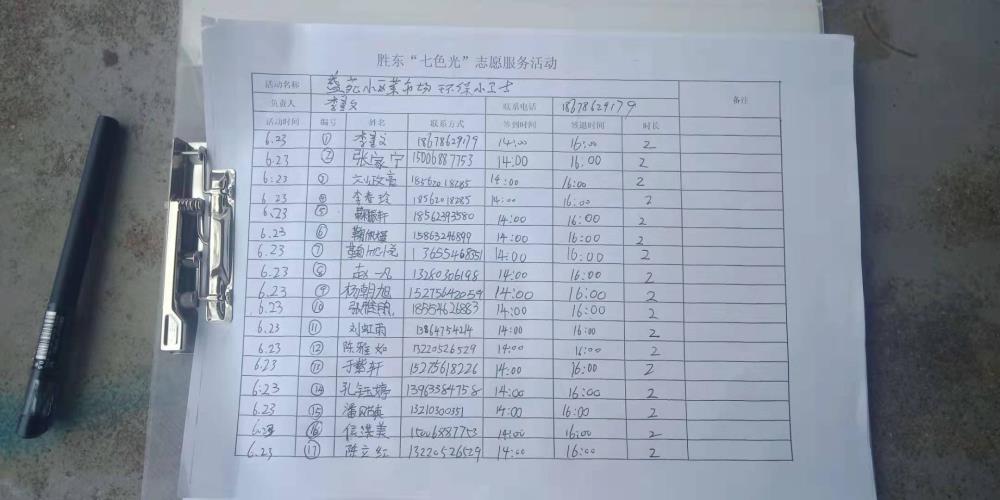 胜东“七色光”志愿服务活动
活动名称 苑小区菜市场环保小卫士 备注
负责人 李 文 联系电话 18678629179
活动时间 编号 姓名 联系方式 签到时间 签退时间 时长
6.23 ① 李 文 18678629179 14:00 16:00 2
6.23 ② 张家宁 15006887753 14:00 16:00 2
6:23 ③ 18562018285 14:00 16:00 2
6.23 ④ 李春玲 18562018285 14:00 16:00 2
6.23 ⑤ 轩 18562393580 14:00 16:00 2
6.23 ⑥ 15863246899 14:00 16:00 2
6.23 ⑦ 13655468351 14:00 16:00 2
6.23 ⑧ 赵一凡 13280306198 14:00 16:00 2
6.23 ⑨ 杨朝旭 15275642059 14:00 16:00 2
6.23 ⑩ 张 雨 18554626883 14:00 16:00 2
6.23 ⑪ 刘虹雨 13864754214 14:00 16:00 2
6.23 ⑫ 陈雅如 13220526529 14:00 16:00 2
6.23 ⑬ 于紫轩 15275618226 14:00 16:00 2
6:23 ⑭ 孔钰婷 13963384758 14:00 16:00 2
6.23 ⑮ 潘 13210300351 14:00 16:00 2
6.23 ⑯ 信洪美 15006887753 14:00 16:00 2
6.23 ⑰ 陈立红 13220526529 14:00 16:00 2